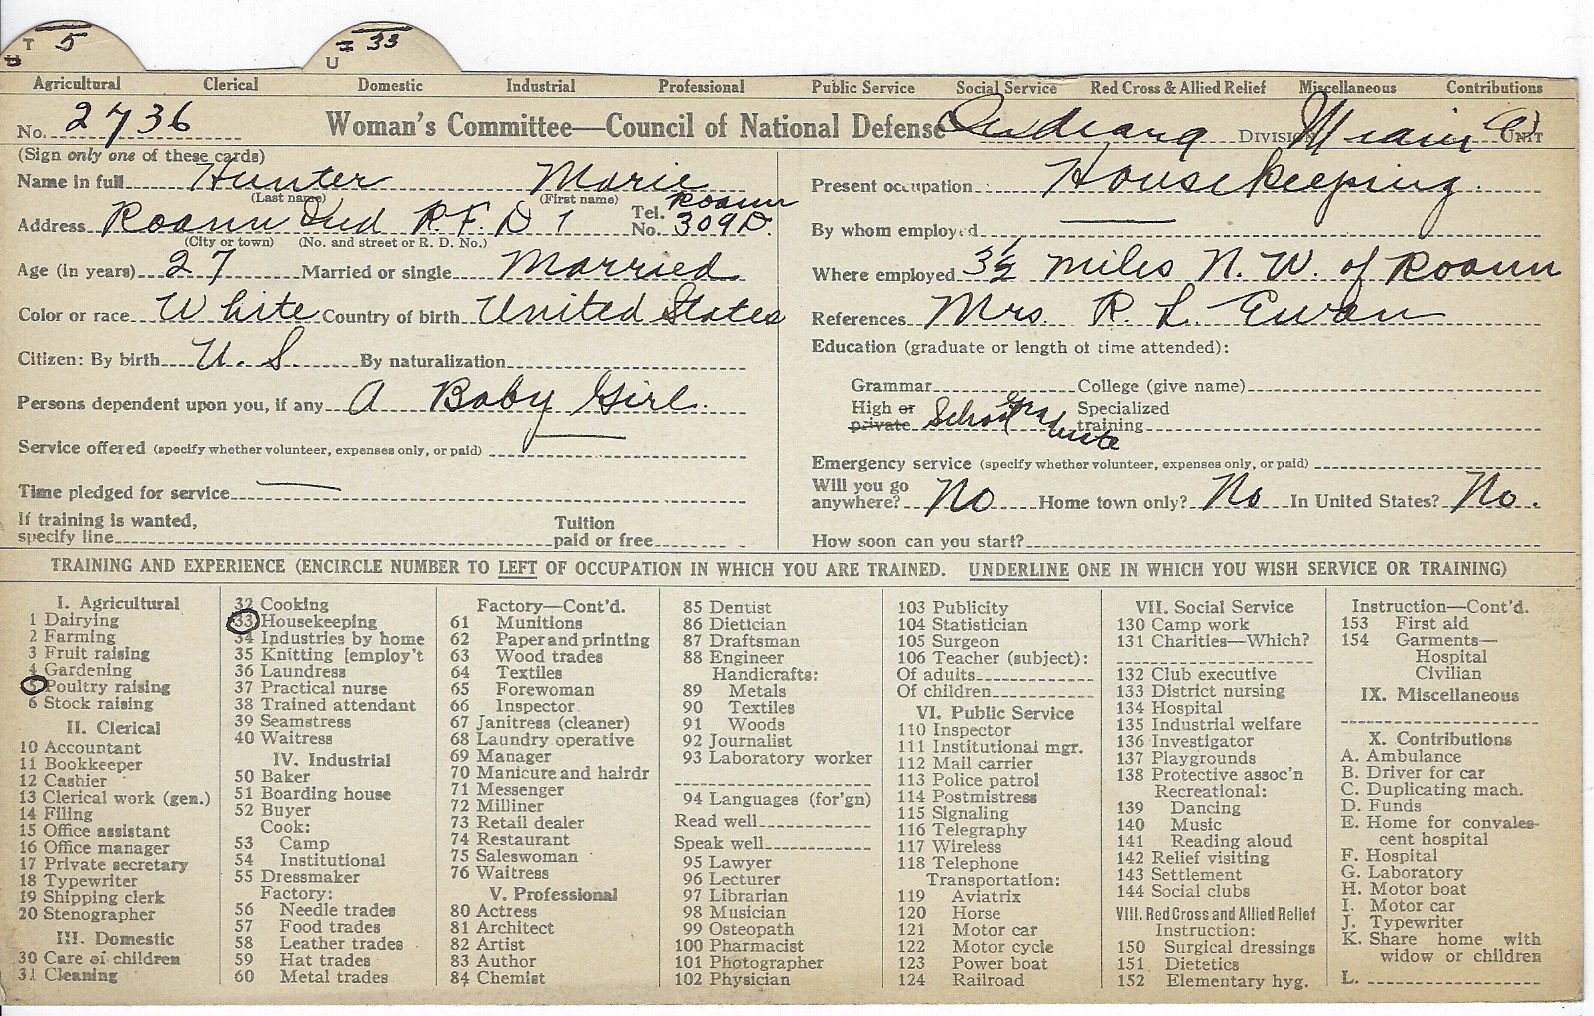 T 5
U I 33
Agricultural Clerical Domestic Industrial Professional Public Service Social Service Red Cross & Allied Relief Miscellaneous Contributions
No. 2736 Woman's Committee—Council of National Defense Indiana DIVISION Miami UNIT
(Sign only one of these cards)
Name in full Hunter Marie
(Last name) (First name)
Address Roann Ind R.F.D 1 Tel. No. Roann 309D.
(City or town) (No. and street or R. D. No.)
Age (in years) 27 Married or single Married
Color or race White Country of birth United States
Citizen: By birth U. S. By naturalization
Persons dependent upon you, if any A Baby Girl.
Service offered (specify whether volunteer, expenses only, or paid)
Time pledged for service
If training is wanted, specify line Tuition paid or free
Present occupation Housekeeping.
By whom employed
Where employed 3½ miles N. W. of Roann
References Mrs. R. L. Ewan
Education (graduate or length of time attended):
Grammar College (give name)
High or private School graduate Specialized training
Emergency service (specify whether volunteer, expenses only, or paid)
Will you go anywhere? No Home town only? No In United States? No.
How soon can you start?
TRAINING AND EXPERIENCE (ENCIRCLE NUMBER TO LEFT OF OCCUPATION IN WHICH YOU ARE TRAINED. UNDERLINE ONE IN WHICH YOU WISH SERVICE OR TRAINING)
I. Agricultural
1 Dairying
2 Farming
3 Fruit raising
4 Gardening
5 Poultry raising
6 Stock raising
II. Clerical
10 Accountant
11 Bookkeeper
12 Cashier
13 Clerical work (gen.)
14 Filing
15 Office assistant
16 Office manager
17 Private secretary
18 Typewriter
19 Shipping clerk
20 Stenographer
III. Domestic
30 Care of children
31 Cleaning
32 Cooking
33 Housekeeping
34 Industries by home
35 Knitting [employ't
36 Laundress
37 Practical nurse
38 Trained attendant
39 Seamstress
40 Waitress
IV. Industrial
50 Baker
51 Boarding house
52 Buyer
Cook:
53 Camp
54 Institutional
55 Dressmaker
Factory:
56 Needle trades
57 Food trades
58 Leather trades
59 Hat trades
60 Metal trades
Factory—Cont'd.
61 Munitions
62 Paper and printing
63 Wood trades
64 Textiles
65 Forewoman
66 Inspector
67 Janitress (cleaner)
68 Laundry operative
69 Manager
70 Manicure and hairdr
71 Messenger
72 Milliner
73 Retail dealer
74 Restaurant
75 Saleswoman
76 Waitress
V. Professional
80 Actress
81 Architect
82 Artist
83 Author
84 Chemist
85 Dentist
86 Dietician
87 Draftsman
88 Engineer
Handicrafts:
89 Metals
90 Textiles
91 Woods
92 Journalist
93 Laboratory worker
94 Languages (for'gn)
Read well
Speak well
95 Lawyer
96 Lecturer
97 Librarian
98 Musician
99 Osteopath
100 Pharmacist
101 Photographer
102 Physician
103 Publicity
104 Statistician
105 Surgeon
106 Teacher (subject):
Of adults
Of children
VI. Public Service
110 Inspector
111 Institutional mgr.
112 Mail carrier
113 Police patrol
114 Postmistress
115 Signaling
116 Telegraphy
117 Wireless
118 Telephone
Transportation:
119 Aviatrix
120 Horse
121 Motor car
122 Motor cycle
123 Power boat
124 Railroad
VII. Social Service
130 Camp work
131 Charities—Which?
132 Club executive
133 District nursing
134 Hospital
135 Industrial welfare
136 Investigator
137 Playgrounds
138 Protective assoc'n
Recreational:
139 Dancing
140 Music
141 Reading aloud
142 Relief visiting
143 Settlement
144 Social clubs
VIII. Red Cross and Allied Relief
Instruction:
150 Surgical dressings
151 Dietetics
152 Elementary hyg.
Instruction—Cont'd.
153 First aid
154 Garments—
Hospital
Civilian
IX. Miscellaneous
X. Contributions
A. Ambulance
B. Driver for car
C. Duplicating mach.
D. Funds
E. Home for convales-
cent hospital
F. Hospital
G. Laboratory
H. Motor boat
I. Motor car
J. Typewriter
K. Share home with
widow or children
L.